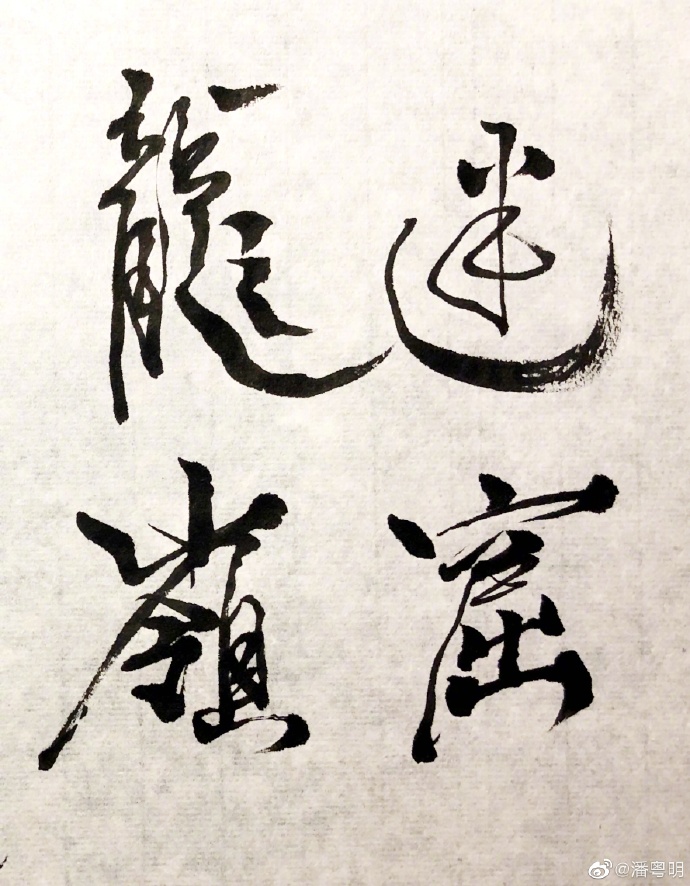 迷窟
龍嶺
@潘粤明